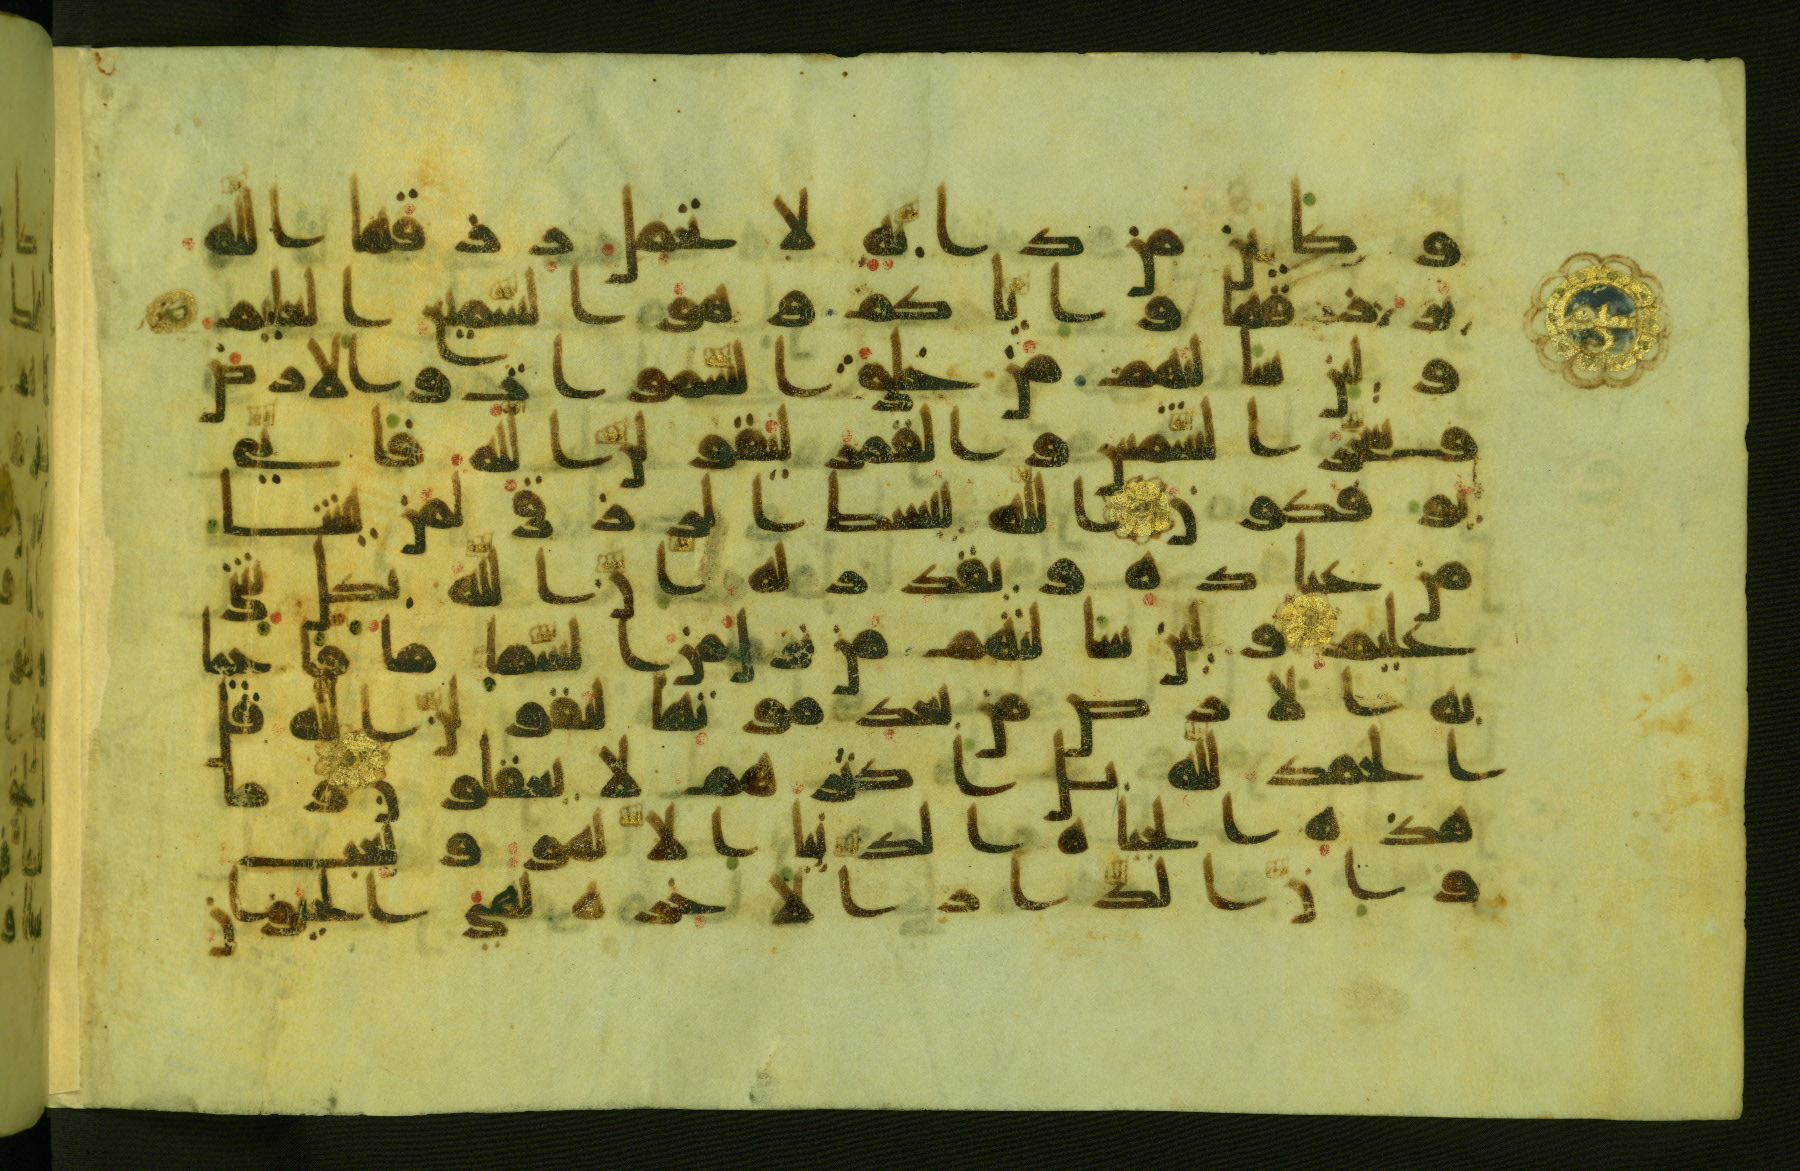 و كاين من دابه لا تحمل رزقها الله
يرزقها و اياكم و هو السميع العليم
و لين سالتهم من خلق السموات والارض
و سخر الشمس و القمر ليقولن الله فانى
يوفكون الله يبسط الرزق لمن يشا
من عباده و يقدر له ان الله بكل شي
عليم و لين سالتهم من نزل من السما ما فاحيا
به الارض من بعد موتها ليقولن الله قل
الحمد لله بل اكثرهم لا يعقلون و ما
هذه الحياه الدنيا الا لهو و لعب
و ان الدار الاخره لهي الحيوان